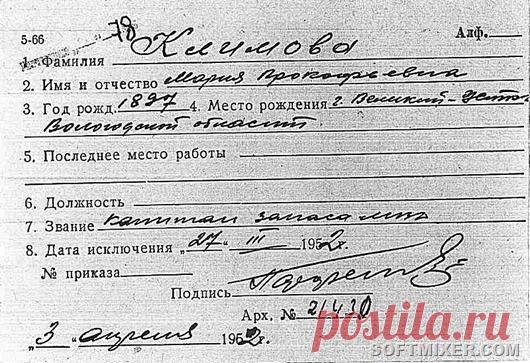 78
5-66 Алф.
1. Фамилия Климова
2. Имя и отчество Мария Прокофьевна
3. Год рожд. 1897 4. Место рождения г. Великий-Устюг
Вологодской области.
5. Последнее место работы
6. Должность
7. Звание капитан запаса
8. Дата исключения „27" III 1952г.
№ приказа
Подпись
Арх. № 21430
„3" апреля 1962г.
postila.ru
SOFTMIXER.COM